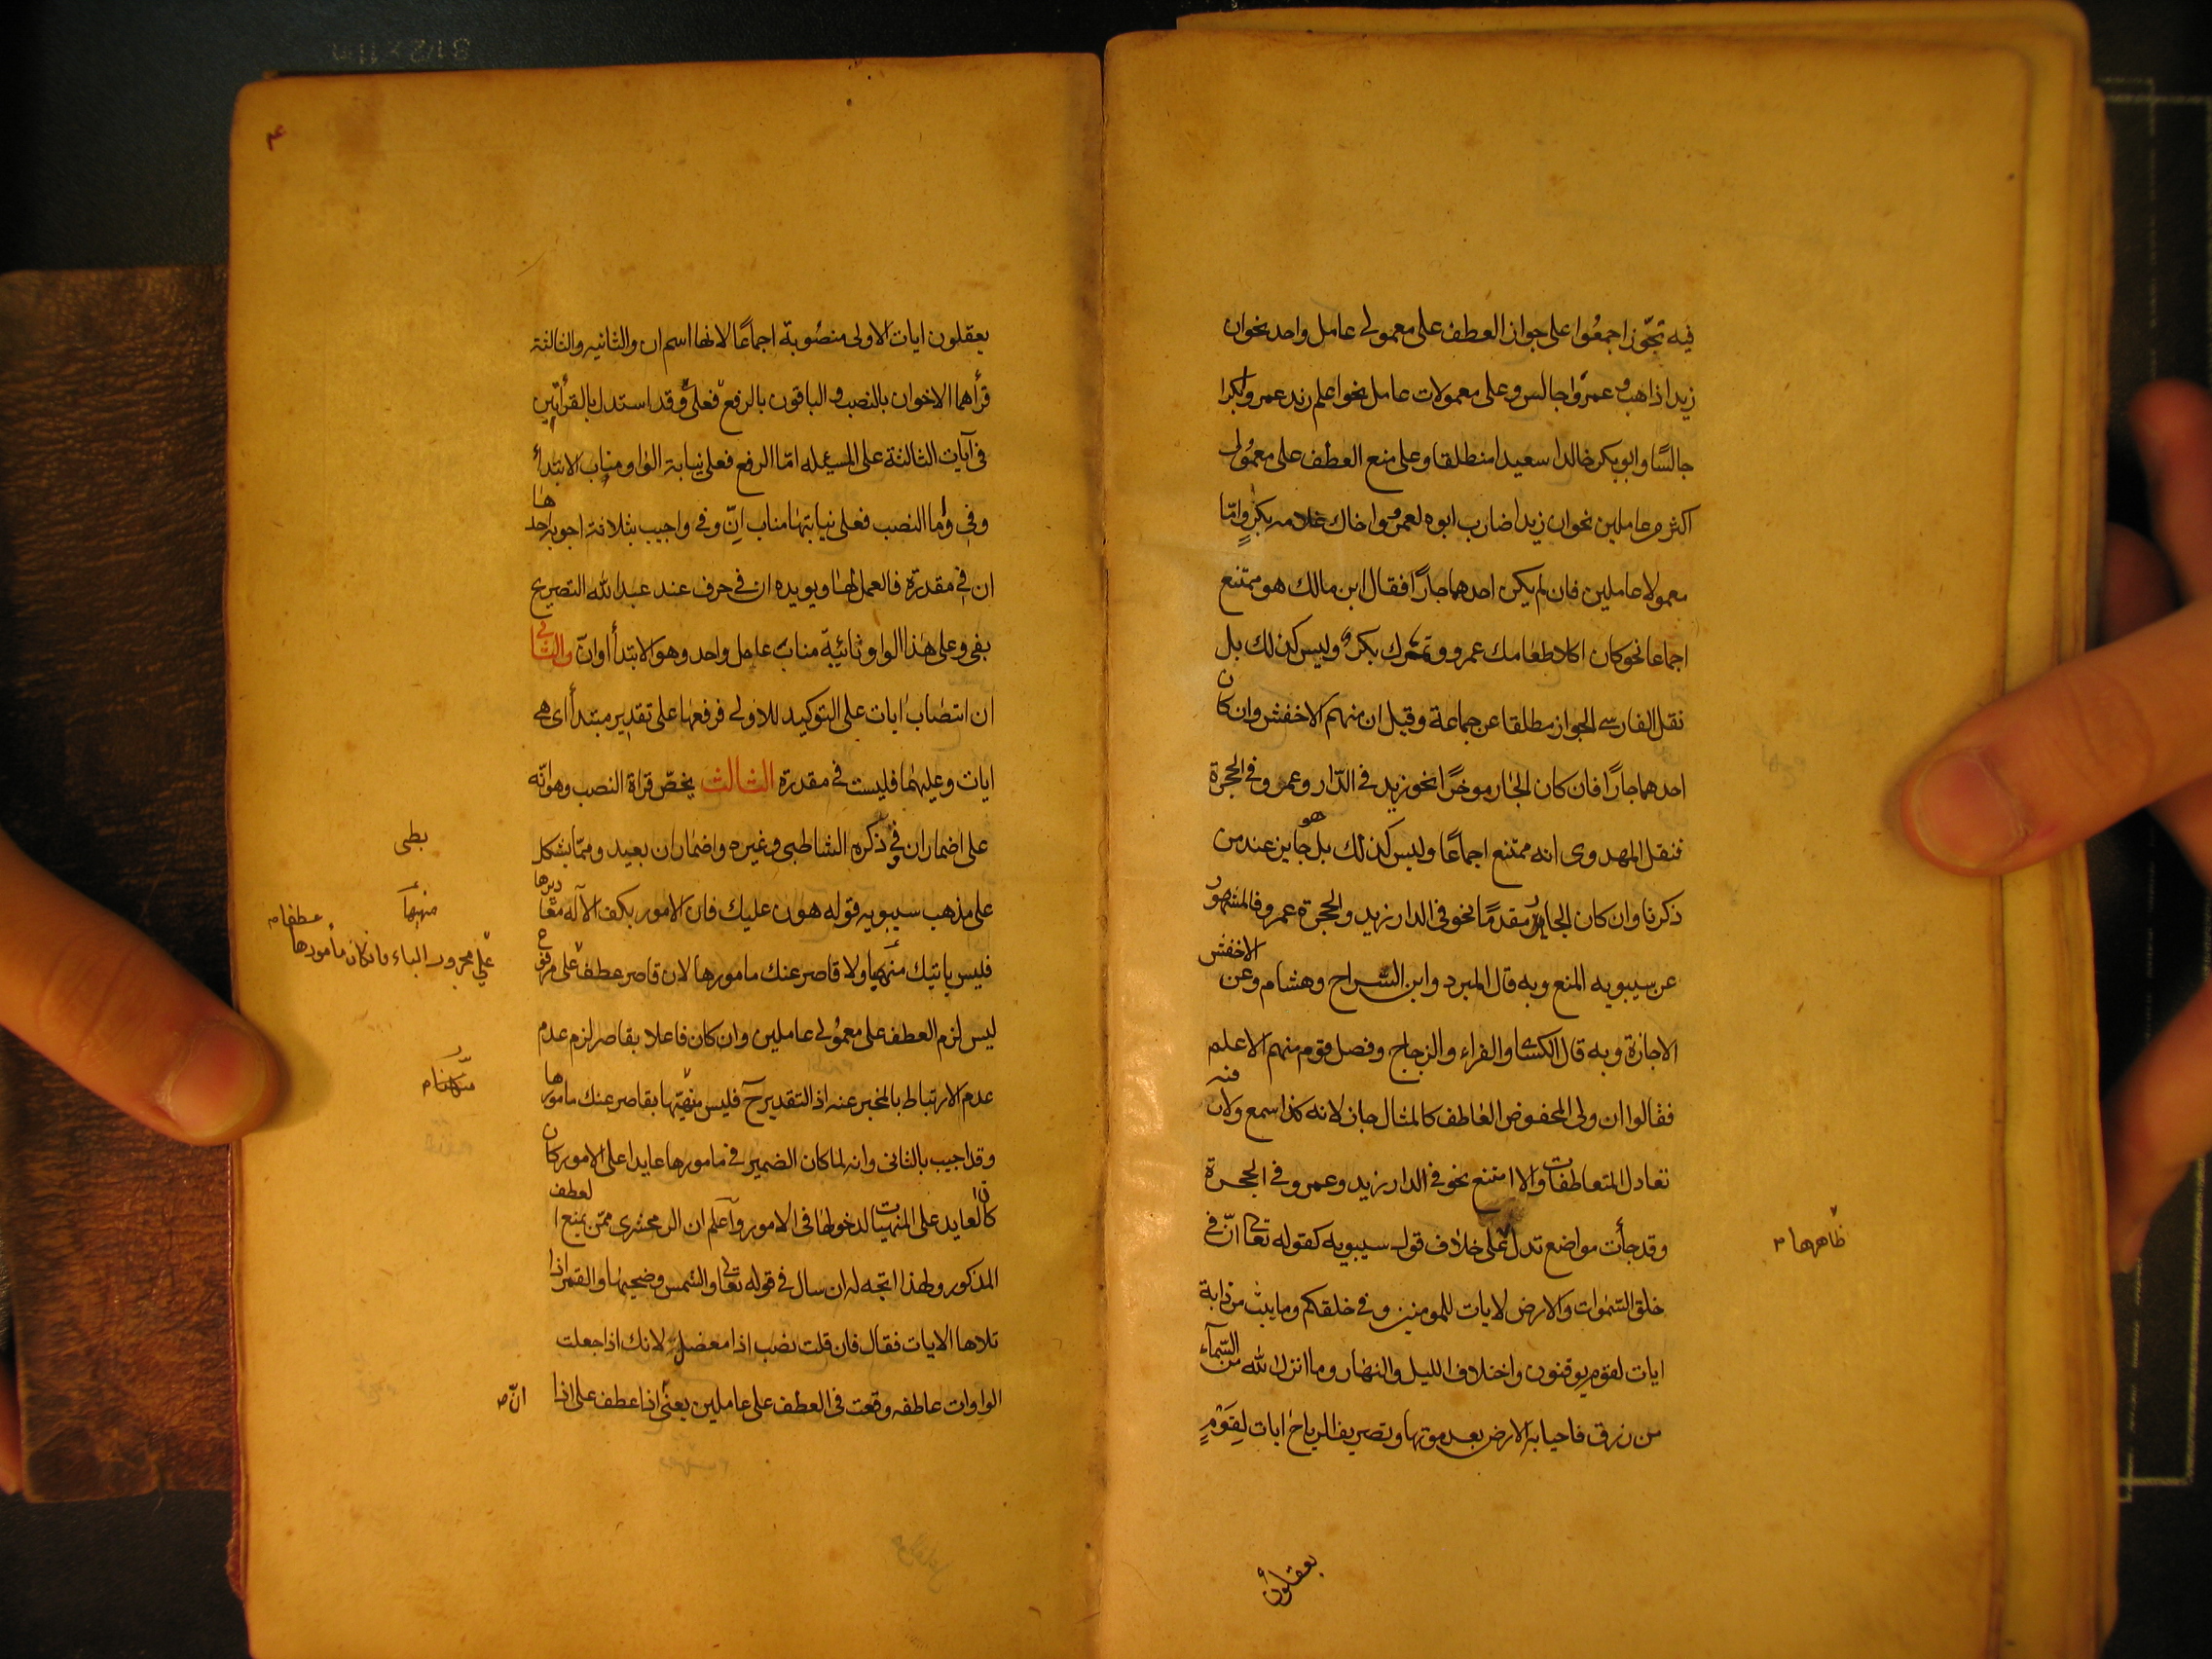 فيه تجوّز اجمعُوا على جواز العطف على معمولى عامل واحد نحو ان
زيدا ذاهب وعمرًوا جالس وعلى معمولات عامل نحو اعلم زيد عمروا بكرا
جالسًا وابو بكر خالدا سعيدا منطلقا وعلى منع العطف على معمُولى
اكثر من عاملين نحو ان زيدا ضارب ابوه لعمرو واخاك غلامه بكرٍ وامّا
معمولا عاملين فان لم يكن احدهما جارًا فقال ابن مالك هو ممتنع
اجماعا نحو كان اكلا طعامك عمرو وتمرك بكر وليس كذلك بل
نقل الفارسے الجواز مطلقا عن جماعة وقيل ان منهم الاخفش وان كان
احدهما جارًا فان كان الجار موخرًا نحو زيد فى الدّار وعمرو فى الحجرة
فنقل المهدوى انه ممتنع اجماعًا وليس كذلك بل هو جايز عند من
ذكرنا وان كان الجار مقدمًا نحو فى الدار زيد والحجرة عمرو فالمشهور
عن سيبويه المنع وبه قال المبرد وابن السّراج وهشام وعن الاخفش
الاجازة وبه قال الكسا والفراء والزجاج وفصل قوم منهم الاعلم
فقالوا ان ولى المخفوض العاطف كالمثال جاز لانه كذا سمع ولان فيه
تعادل المتعاطفات والا امتنع نحو فى الدار زيد وعمرو فى الحجرة
وقد جأت مواضع تدل على خلاف قول سيبويه كقوله تعالى انّ فى
ظاهرها م
خلق السّموات والارض لايات للمومنين وفى خلقكم وما يبث من دابة
ايات لقوم يوقنون واختلاف الليل والنهار وما انزل الله من السّمآء
من رزق فاحيا به الارض بعد موتها وتصريف الرياح ايات لِقَوْمٍ
يعقلون
يعقلون ايات الاولى منصُوبة اجماعًا لانها اسم ان والثانيه والثالثة
قرأهما الاخوان بالنصب والباقون بالرفع فعلى وقد استدل بالقرأتين
فى آيات الثالثة على المسئله امّا الرفع فعلى نيابة الواو مناب الابتدأ
وفى واما النصب فعلى نيابتها مناب اِنّ وفى واجيب بثلاثة اجوبة احدها
ان فى مقدرة فالعمل لها ويويده ان فى حرف عند عبد الله التصريح
بفى وعلى هذا الواو نائبة مناب عامل واحد وهو الابتدأ او انّ والثانى
ان انتصاب ايات على التوكيد للاولى ورفعها على تقدير مبتدأ اى هى
ايات وعليهما فليست فى مقدرة الثالث يخصّ قراة النصب وهو انّه
على اضمار ان وفى ذكره الشاطبى وغيره واضمار ان بعيد وممّا يشكل
على مذهب سيبويه قوله هون عليك فان الامور بكف الآله مقاديرها
فليس ياتيك منهيها ولا قاصر عنك مامورها لان قاصر عطف على مرفوع
ليس لزم العطف على معمُولى عاملين وان كان فاعلا بقاصر لزم عدم
عدم الارتباط بالمخبر عنه اذ التقدير ح فليس منهيها بقاصر عنك مامورها
وقد اجيب بالثانى وانه لما كان الضمير فى مامورها عايدا على الامور كان
كالعايد على المنهيات لدخولها فى الامور واعلم ان الزمخشرى ممّن يمنع العطف
المذكور ولهذا اتجه له ان سال فى قوله تعالى والشمس وضحيها والقمر اذا
تلاها الايات فقال فان قلت نصب اذا معضل لانك اذا جعلت
الواوات عاطفه وقعت فى العطف على عاملين يعنى اذا عطف على اذا
بطى
منهيها
عطفا م
على مجرور الباء فان كان مأمورها
انّ ص